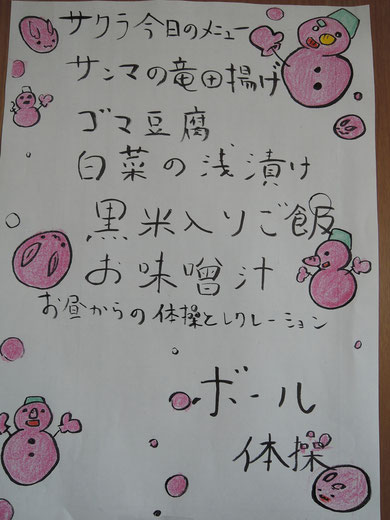 サクラ今日のメニュー
サンマの竜田揚げ
ゴマ豆腐
白菜の浅漬け
黒米入りご飯
お味噌汁
お昼からの体操とレクレーション
ボール
体操